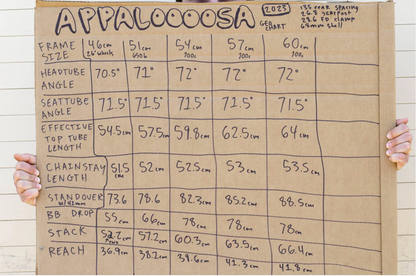 APPALOOOOSA 2023 GEO CHART
135 rear spacing
26.8 seatpost
28.6 FD clamp
68mm shell
FRAME SIZE 46cm 26" wheel 51cm 650b 54cm 700c 57cm 700c 60cm 700c
HEADTUBE ANGLE 70.5° 71° 72° 72° 72°
SEATTUBE ANGLE 71.5° 71.5° 71.5° 71.5° 71.5°
EFFECTIVE TOP TUBE LENGTH 54.5cm 57.5cm 59.8cm 62.5cm 64cm
CHAINSTAY LENGTH 51.5cm 52cm 52.5cm 53cm 53.5cm
STANDOVER 73.6 78.6 82.3cm 85.2cm 88.5cm
BB DROP 55cm 66cm 78cm 78cm 78cm
STACK 57.2cm 60.3cm 63.5cm 66.4cm
REACH 36.9cm 38.2cm 39.6cm 41.3cm 41.8cm